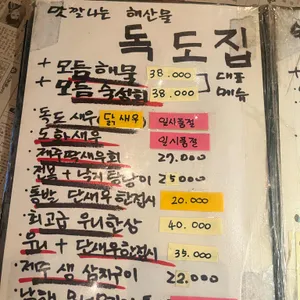 맛깔나는 해산물
독도집
+ 모듬해물 38.000
+ 모듬숙성회 38.000
대표
메뉴
· 독도새우(닭새우) 일시품절
· 도화새우 일시품절
· 제주딱새우회 27.000
· 전복 + 낙지탕탕이 25000
· 통발 단새우한접시 20.000
· 최고급 우니한상 40.000
· 우니 + 단새우한접시 35.000
22.000